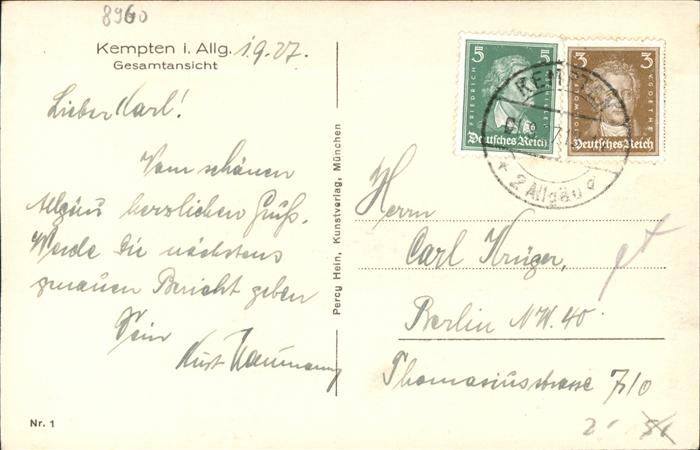 8960
Kempten i. Allg. 1.9.27.
Gesamtansicht
Lieber Karl!
Vom schönen
Allgäu herzlichen Gruß.
Werde Dir nächstens
genauen Bericht geben
Dein
Kurt Naumann
Nr. 1
Percy Hein, Kunstverlag, München
5 5
FRIEDRICH SCHILLER
Deutsches Reich
3 3
JOH·WOLFG V·GOETHE
Deutsches Reich
KEMPTEN
* 2 Allgäu
Herrn
Carl Krüger,
Berlin NW. 40.
Thomasiusstrasse 7/0